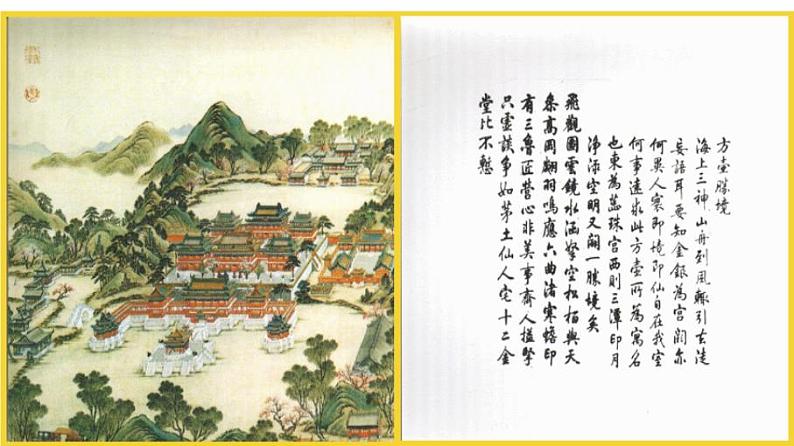 方壺勝境
海上三神山舟到風輒引去徒
妄語耳要知金銀為宮闕亦
何異人寰即境即仙自在我室
何事遠求此方壺所為寓名
也東為蕊珠宮西則三潭印月
淨渌空明又闢一勝境矣
飛觀圖雲鏡水涵拏空松柏與天
叅高岡翽羽鳴應六曲渚寒蟾印
有三魯匠營心非美事齊人搤掔
只虛談爭如茅土仙人宅十二金
堂比不慙